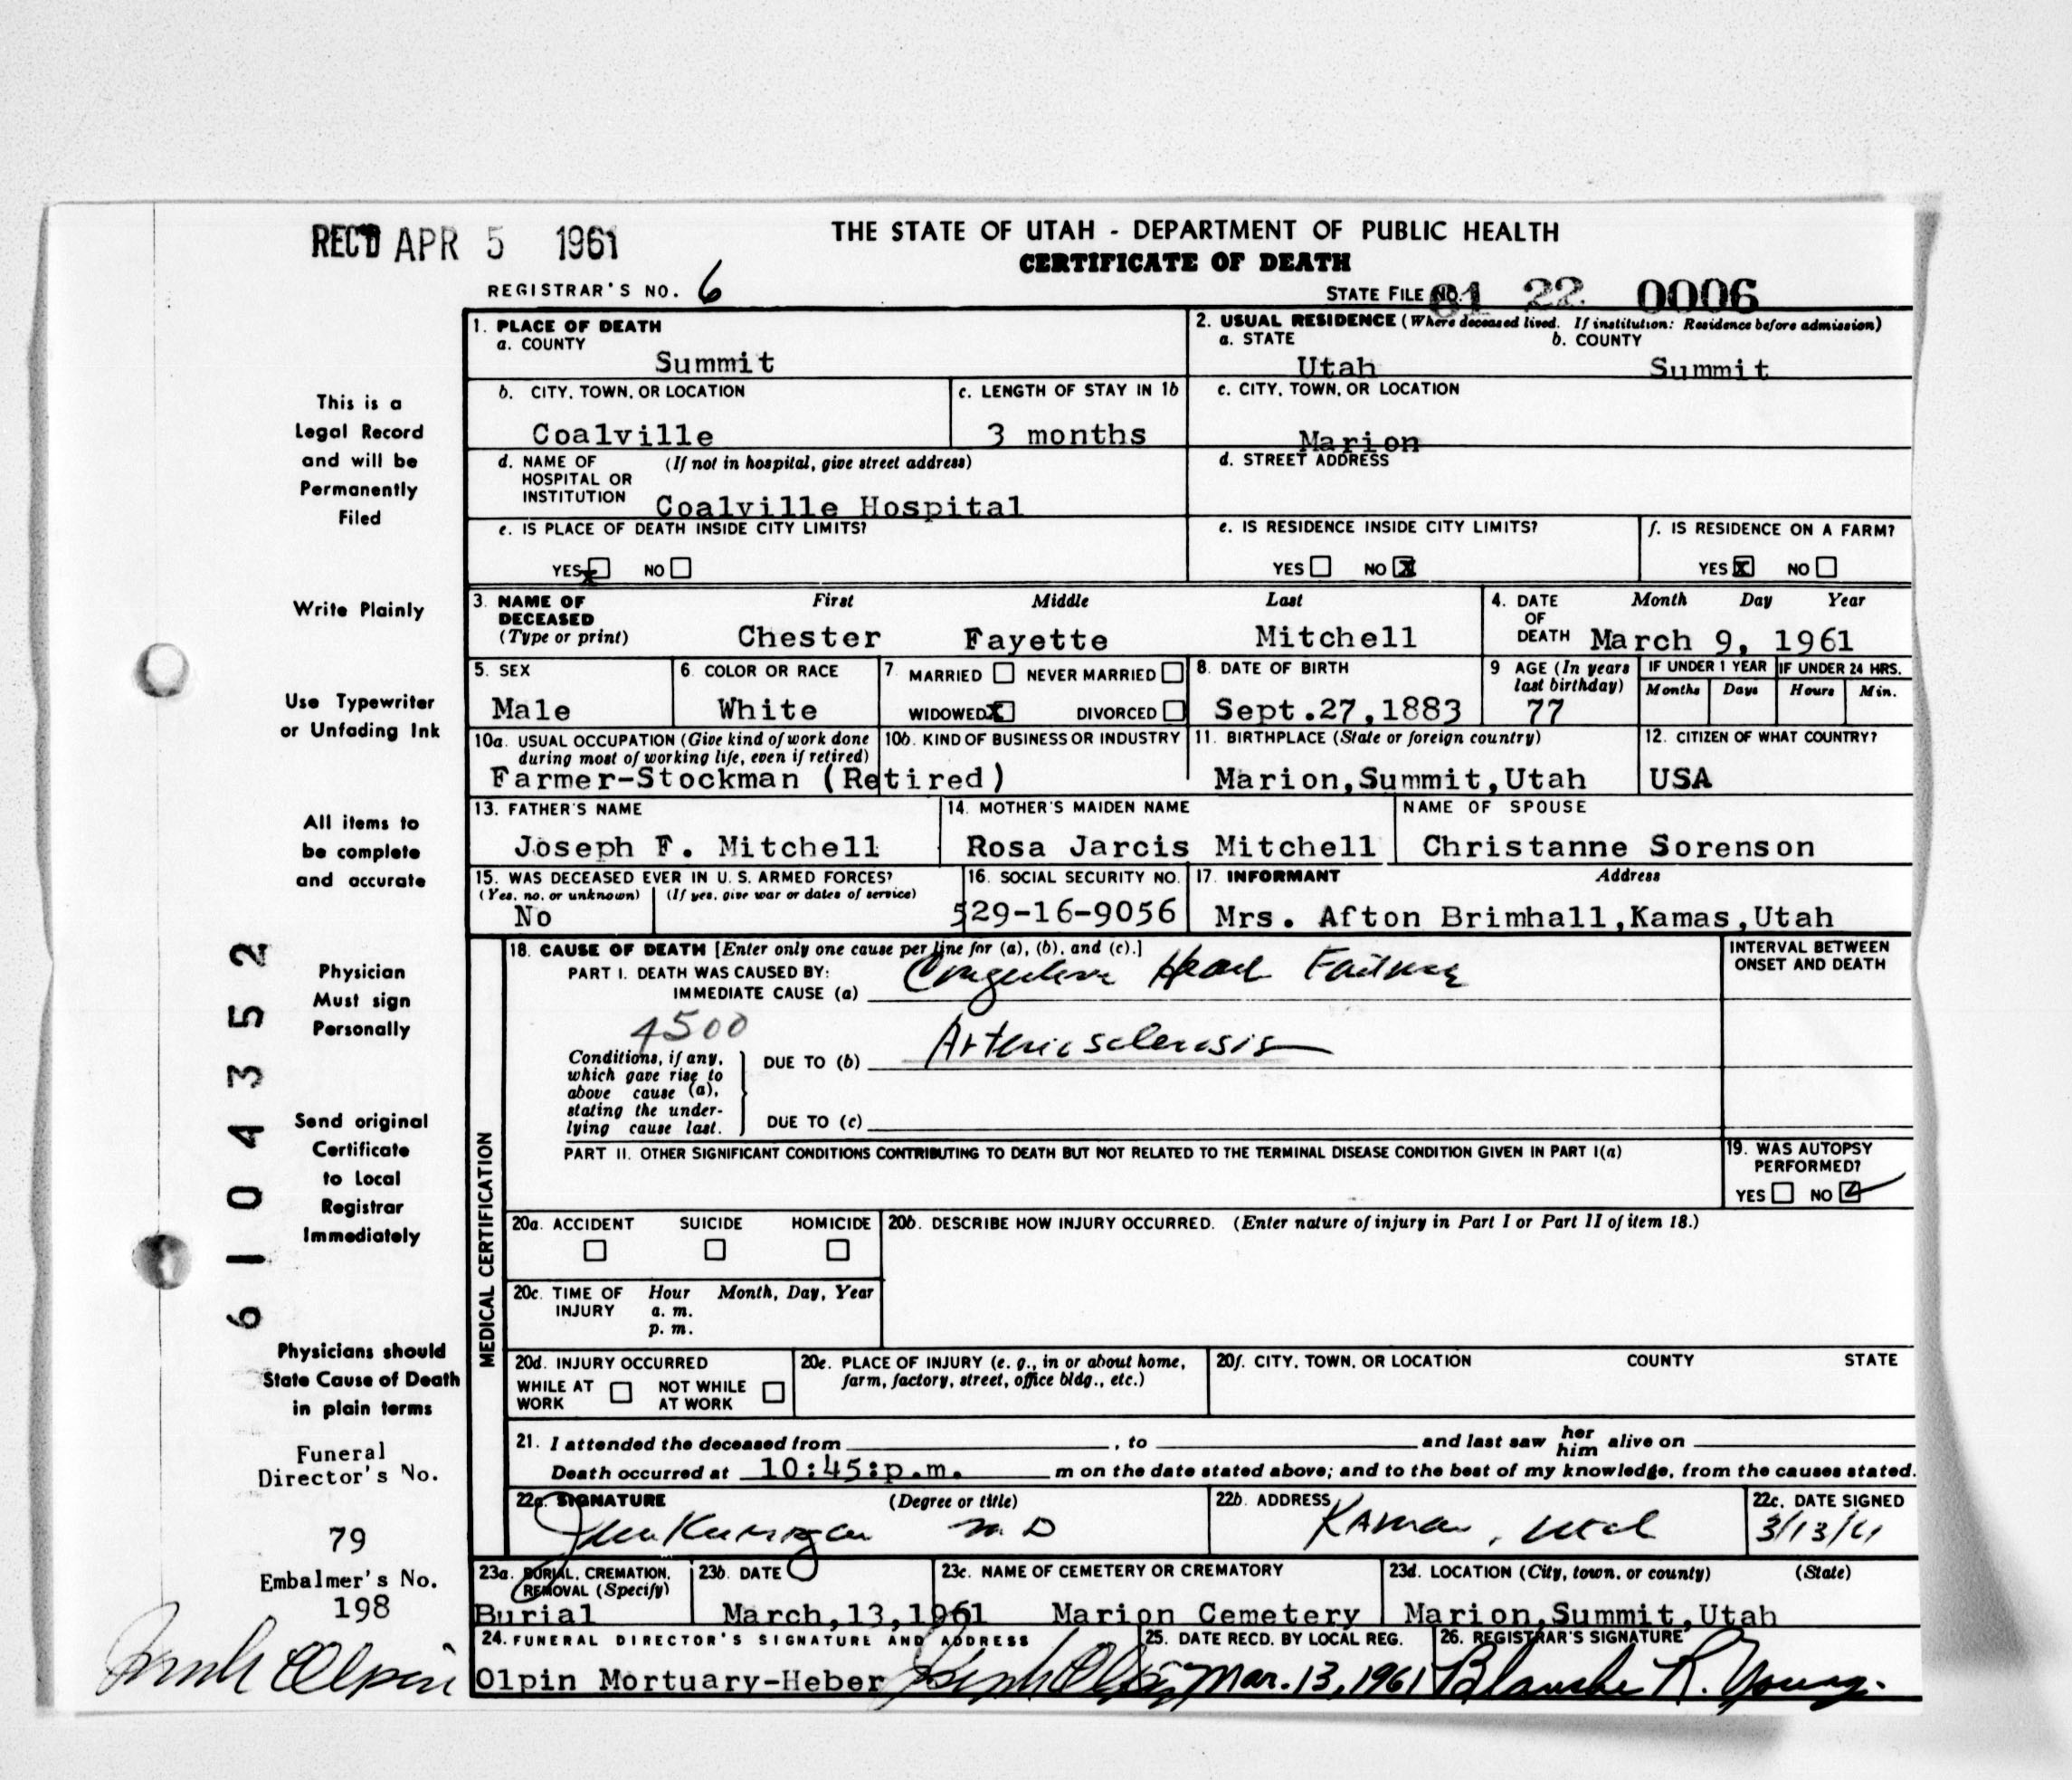 REC'D APR 5 1961
THE STATE OF UTAH - DEPARTMENT OF PUBLIC HEALTH
CERTIFICATE OF DEATH
REGISTRAR'S NO. 6
STATE FILE NO. 61 22 0006
This is a
Legal Record
and will be
Permanently
Filed
Write Plainly
Use Typewriter
or Unfading Ink
All items to
be complete
and accurate
Physician
Must sign
Personally
Send original
Certificate
to Local
Registrar
Immediately
Physicians should
State Cause of Death
in plain terms
Funeral
Director's No.
79
Embalmer's No.
198
Olpin
6104352
1. PLACE OF DEATH
a. COUNTY
Summit
2. USUAL RESIDENCE (Where deceased lived. If institution: Residence before admission)
a. STATE b. COUNTY
Utah Summit
b. CITY, TOWN, OR LOCATION
Coalville
c. LENGTH OF STAY IN 1b
3 months
c. CITY, TOWN, OR LOCATION
Marion
d. NAME OF (If not in hospital, give street address)
HOSPITAL OR
INSTITUTION Coalville Hospital
d. STREET ADDRESS
e. IS PLACE OF DEATH INSIDE CITY LIMITS?
YES x NO
e. IS RESIDENCE INSIDE CITY LIMITS?
YES NO x
f. IS RESIDENCE ON A FARM?
YES x NO
3. NAME OF DECEASED (Type or print)
First Middle Last
Chester Fayette Mitchell
4. DATE OF DEATH
Month Day Year
March 9, 1961
5. SEX
Male
6. COLOR OR RACE
White
7 MARRIED NEVER MARRIED
WIDOWED x DIVORCED
8. DATE OF BIRTH
Sept.27,1883
9 AGE (In years last birthday)
77
IF UNDER 1 YEAR IF UNDER 24 HRS.
Months Days Hours Min.
10a. USUAL OCCUPATION (Give kind of work done
during most of working life, even if retired)
Farmer-Stockman (Retired)
10b. KIND OF BUSINESS OR INDUSTRY
11. BIRTHPLACE (State or foreign country)
Marion,Summit,Utah
12. CITIZEN OF WHAT COUNTRY?
USA
13. FATHER'S NAME
Joseph F. Mitchell
14. MOTHER'S MAIDEN NAME
Rosa Jarcis Mitchell
NAME OF SPOUSE
Christanne Sorenson
15. WAS DECEASED EVER IN U. S. ARMED FORCES?
(Yes, no, or unknown) (If yes, give war or dates of service)
No
16. SOCIAL SECURITY NO.
529-16-9056
17. INFORMANT Address
Mrs. Afton Brimhall,Kamas,Utah
MEDICAL CERTIFICATION
18. CAUSE OF DEATH [Enter only one cause per line for (a), (b), and (c).]
PART I. DEATH WAS CAUSED BY:
IMMEDIATE CAUSE (a) Congestive Heart Failure
4500
Conditions, if any,
which gave rise to
above cause (a),
stating the under-
lying cause last.
DUE TO (b) Arteriosclerosis
DUE TO (c)
INTERVAL BETWEEN
ONSET AND DEATH
PART II. OTHER SIGNIFICANT CONDITIONS CONTRIBUTING TO DEATH BUT NOT RELATED TO THE TERMINAL DISEASE CONDITION GIVEN IN PART I(a)
19. WAS AUTOPSY
PERFORMED?
YES NO
20a. ACCIDENT SUICIDE HOMICIDE
20b. DESCRIBE HOW INJURY OCCURRED. (Enter nature of injury in Part I or Part II of item 18.)
20c. TIME OF INJURY
Hour Month, Day, Year
a. m.
p. m.
20d. INJURY OCCURRED
WHILE AT WORK NOT WHILE AT WORK
20e. PLACE OF INJURY (e. g., in or about home,
farm, factory, street, office bldg., etc.)
20f. CITY, TOWN, OR LOCATION COUNTY STATE
21. I attended the deceased from , to and last saw her him alive on
Death occurred at 10:45:p.m. m on the date stated above; and to the best of my knowledge, from the causes stated.
22a. SIGNATURE (Degree or title)
M D
22b. ADDRESS
Kamas, Utah
22c. DATE SIGNED
3/13/61
23a. BURIAL, CREMATION,
REMOVAL (Specify)
Burial
23b. DATE
March,13,1961
23c. NAME OF CEMETERY OR CREMATORY
Marion Cemetery
23d. LOCATION (City, town, or county) (State)
Marion,Summit,Utah
24. FUNERAL DIRECTOR'S SIGNATURE AND ADDRESS
Olpin Mortuary-Heber Olpin
25. DATE RECD. BY LOCAL REG.
Mar. 13, 1961
26. REGISTRAR'S SIGNATURE
Blanche R. Young